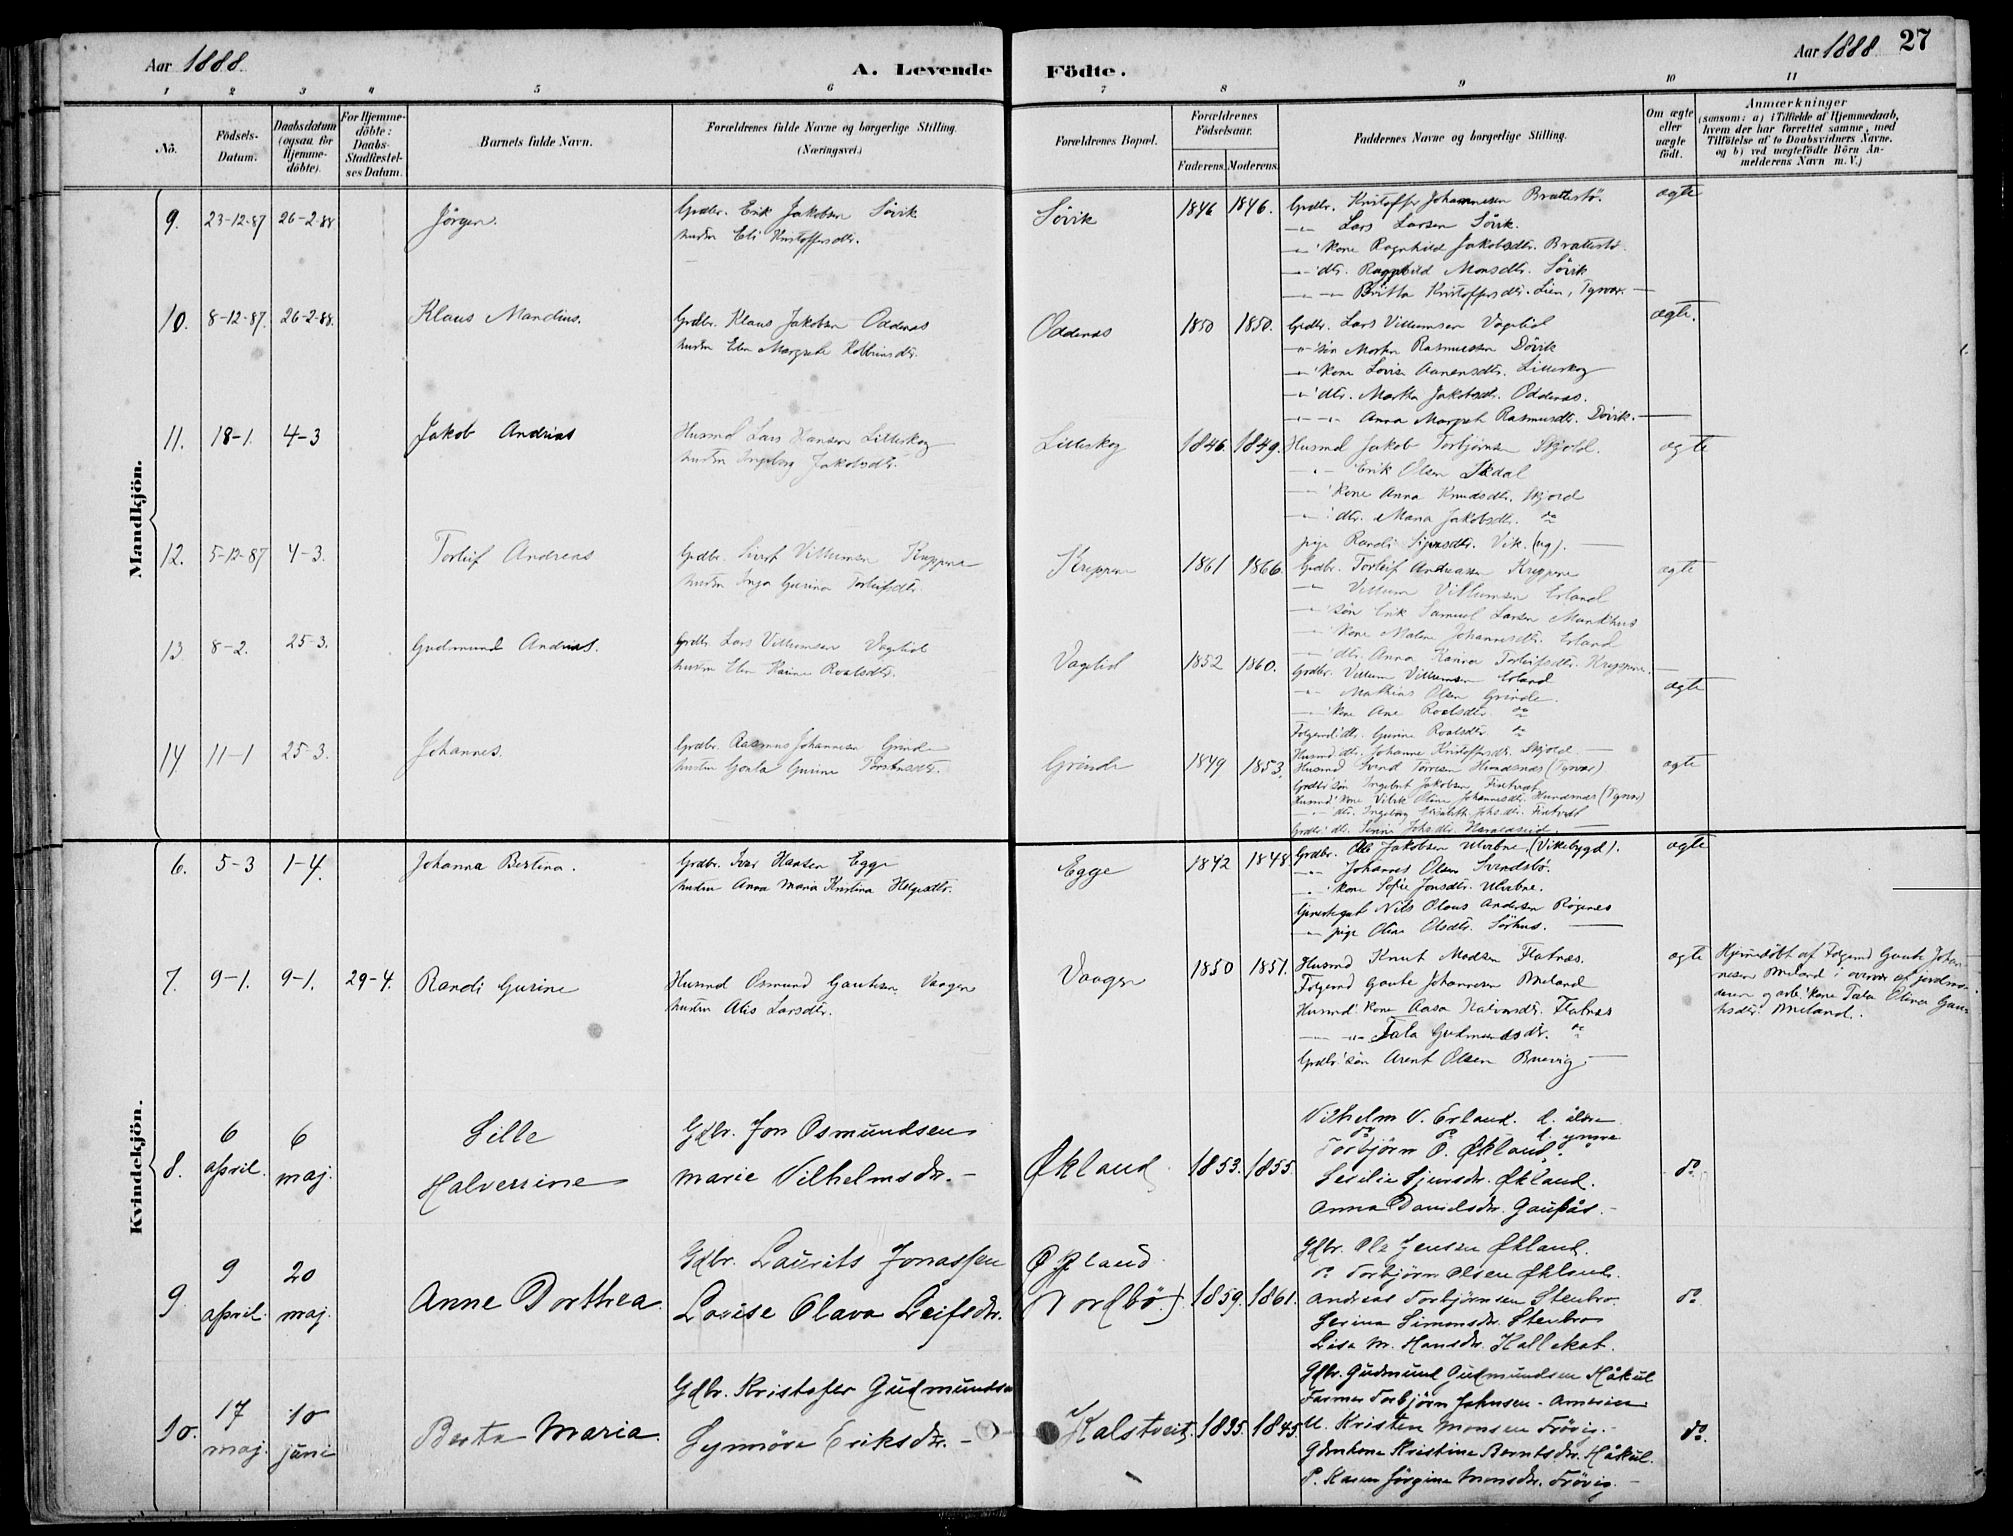 Aar 1888.
A. Levende
Födte.
Aar 1888
27
1 2 3 4 5 6 7 8 9 10 11
Nö.
Födsels-
Datum.
Daabsdatum
(ogsaa for
Hjemme-
döbte).
For Hjemme-
döbte:
Daabs-
Stadfæstel-
ses Datum.
Barnets fulde Navn.
Forældrenes fulde Navne og borgerlige Stilling.
(Næringsvei.)
Forældrenes Bopæl.
Forældrenes
Födselsaar.
Faderens. Moderens.
Faddernes Navne og borgerlige Stilling.
Om ægte
eller
uægte
födt.
Anmærkninger
(saasom: a) i Tilfælde af Hjemmedaab,
hvem der har forrettet samme, med
Tilföielse af to Daabsvidners Navne.
og b) ved uægtefödte Börn An-
melderens Navn m. V.)
Mandkjön.
9. 23-12-87 26-2-88 Jörgen.
Grdbr. Erik Jakobsen Sövik
hustru Eli Kristoffersdtr.
Sövik 1846 1846.
Grdbr. Kristoffer Johannesen Brattestö.
Lars Larsen Sövik.
kone Ragnhild Jakobsdtr. Brattestö.
dtr. Ragnhild Monsdtr. Sövik
Britta Kristoffersdtr. Lien, Tysvær.
ægte
10. 8-12-87. 26-2-88. Klaus Mandius.
Grdbr. Klaus Jakobsen Oddenes
hustru Elen Margrete
Oddenes 1850 1850.
Grdbr. Lars Villumsen Vagelid
sön Morten Rasmussen Dövik
kone Lovise Aanensdtr. Litleskog
dtr. Martha Jakobsdtr. Oddenes.
Anna Margrete Rasmusdtr. Dövik.
ægte.
11. 18-1. 4-3 Jakob Andreas
Husmd Lars Hansen Litleskog
hustru Ingeborg Jakobsdtr.
Litleskog 1846. 1849.
Husmd Jakob Torbjörnsen Skjold.
Erik Olsen
kone Anna Knudsdtr. Skjold
dtr. Maria Jakobsdtr. do
pige Randi Vik. (ug).
ægte
12. 5-12-87 4-3. Torleif Andreas
Grdbr. Sivert Villumsen Krippene
hustru Inga Gurina Torleifsdtr.
Krippene 1861 1866.
Grdbr. Torleif Andreassen Krippene
Villum Villumsen Erland
sön Erik Samuel Larsen Munkhus
kone Malene Johannesdtr. Erland
dtr. Anna Karina Torleifsdtr. Krippene.
ægte
13 8-2. 25-3. Gudmund Andreas.
Grdbr. Lars Villumsen Vagelid
hustru Elen Karine Roaldsdtr.
Vagelid 1852 1860.
Grdbr. Villum Villumsen Erland
Mathias Olsen Grinde.
kone Ane Roaldsdtr. do
Folgemd. dtr. Gurine Roaldsdtr. do
Husmd. dtr. Johanne Kristoffersdtr. Skjold.
ægte
14. 11-1 25-3. Johannes.
Grdbr. Rasmus Johannesen Grinde
hustru Gonla Gurine Torstensdtr.
Grinde 1849 1853.
Husmd Svend Tørresen Hundsnes (Tysvær)
Grdbr. sön Ingebret Jakobsen Fistveit
Husmd. kone Vibek Oline Johannesdtr. Hundsnes (Tysvær)
dtr. Ingeborg Elisabeth Johsdtr. Fistveit
Grdbr. dtr. Johsdtr. Haraldseid.
ægte
Kvindekjön.
6. 5-3 1-4. Johanna Bertina.
Grdbr. Ivar Hansen Egge
hustru Anna Maria Kristina Helgesdtr.
Egge 1842 1848.
Grdbr. Ole Jakobsen Ulvebne. (Vikebygd).
Johannes Olsen Svendsbö.
kone Sofie Jonsdtr. Ulvebne.
Nils Olaus Andersen Röyenes
pige Oline Olsdtr. Sörhus.
ægte
7. 9-1. 9-1. 29-4. Randi Gurine
Husmd Osmund Gautesen Vaagen
hustru Alis Larsdtr.
Vaagen 1850 1851.
Husmd Knut Madsen Flatnes.
Folgemd Gaute Johannesen Meland
Husmd. kone Aasa Halvorsdtr. Flatnes
Tala Gudmundsdtr. do
Grdbr. sön Arent Olsen Buevig
ægte
Hjemmedöbt af Folgemd Gaute Johan-
nesen Meland i overvær af jordmo-
deren og arb. kone Tala Olina Gau-
tesdtr. Meland.
8. 6 april. 6 maj. Sille
Halversine
Gdbr. Jon Osmundsen
Marie Vilhelmsdr.
Økland. 1853. 1855.
Vilhelm V. Erland. d. äldre
do do d. yngre
Torbjörn O. Økland.
Secilie Sjursdr. Økland.
Anna Danielsdr. Gaupås.
do
9 9 april. 20 maj. Anne Dorthea.
Gdbr. Laurits Jonassen
Lovise Olava Leifsdr.
Økland
(Nordbö.) 1859. 1861.
Gdbr. Ole Jensen Økland.
do Torbjörn Olsen Økland.
Andreas Torbjörnsen Stenbro.
Serina Simonsdr. Stenbro
Lisa M. Hansdr. Hallekot.
do
10. 17 maj. 10 juni Berta Maria.
Gdbr. Kristofer Gudmundsen
Synnöve Eriksdr.
Kalstveit. 1835. 1845.
Gdbr. Gudmund Gudmundsen Håkul
Farmer Torbjörn Johnsen - America
U. Kristen Monsen Frövig.
Gdmkone Kristine Berntsdr. Håkul.
P. Karen Jörgine Monsdr. Frövig.
do